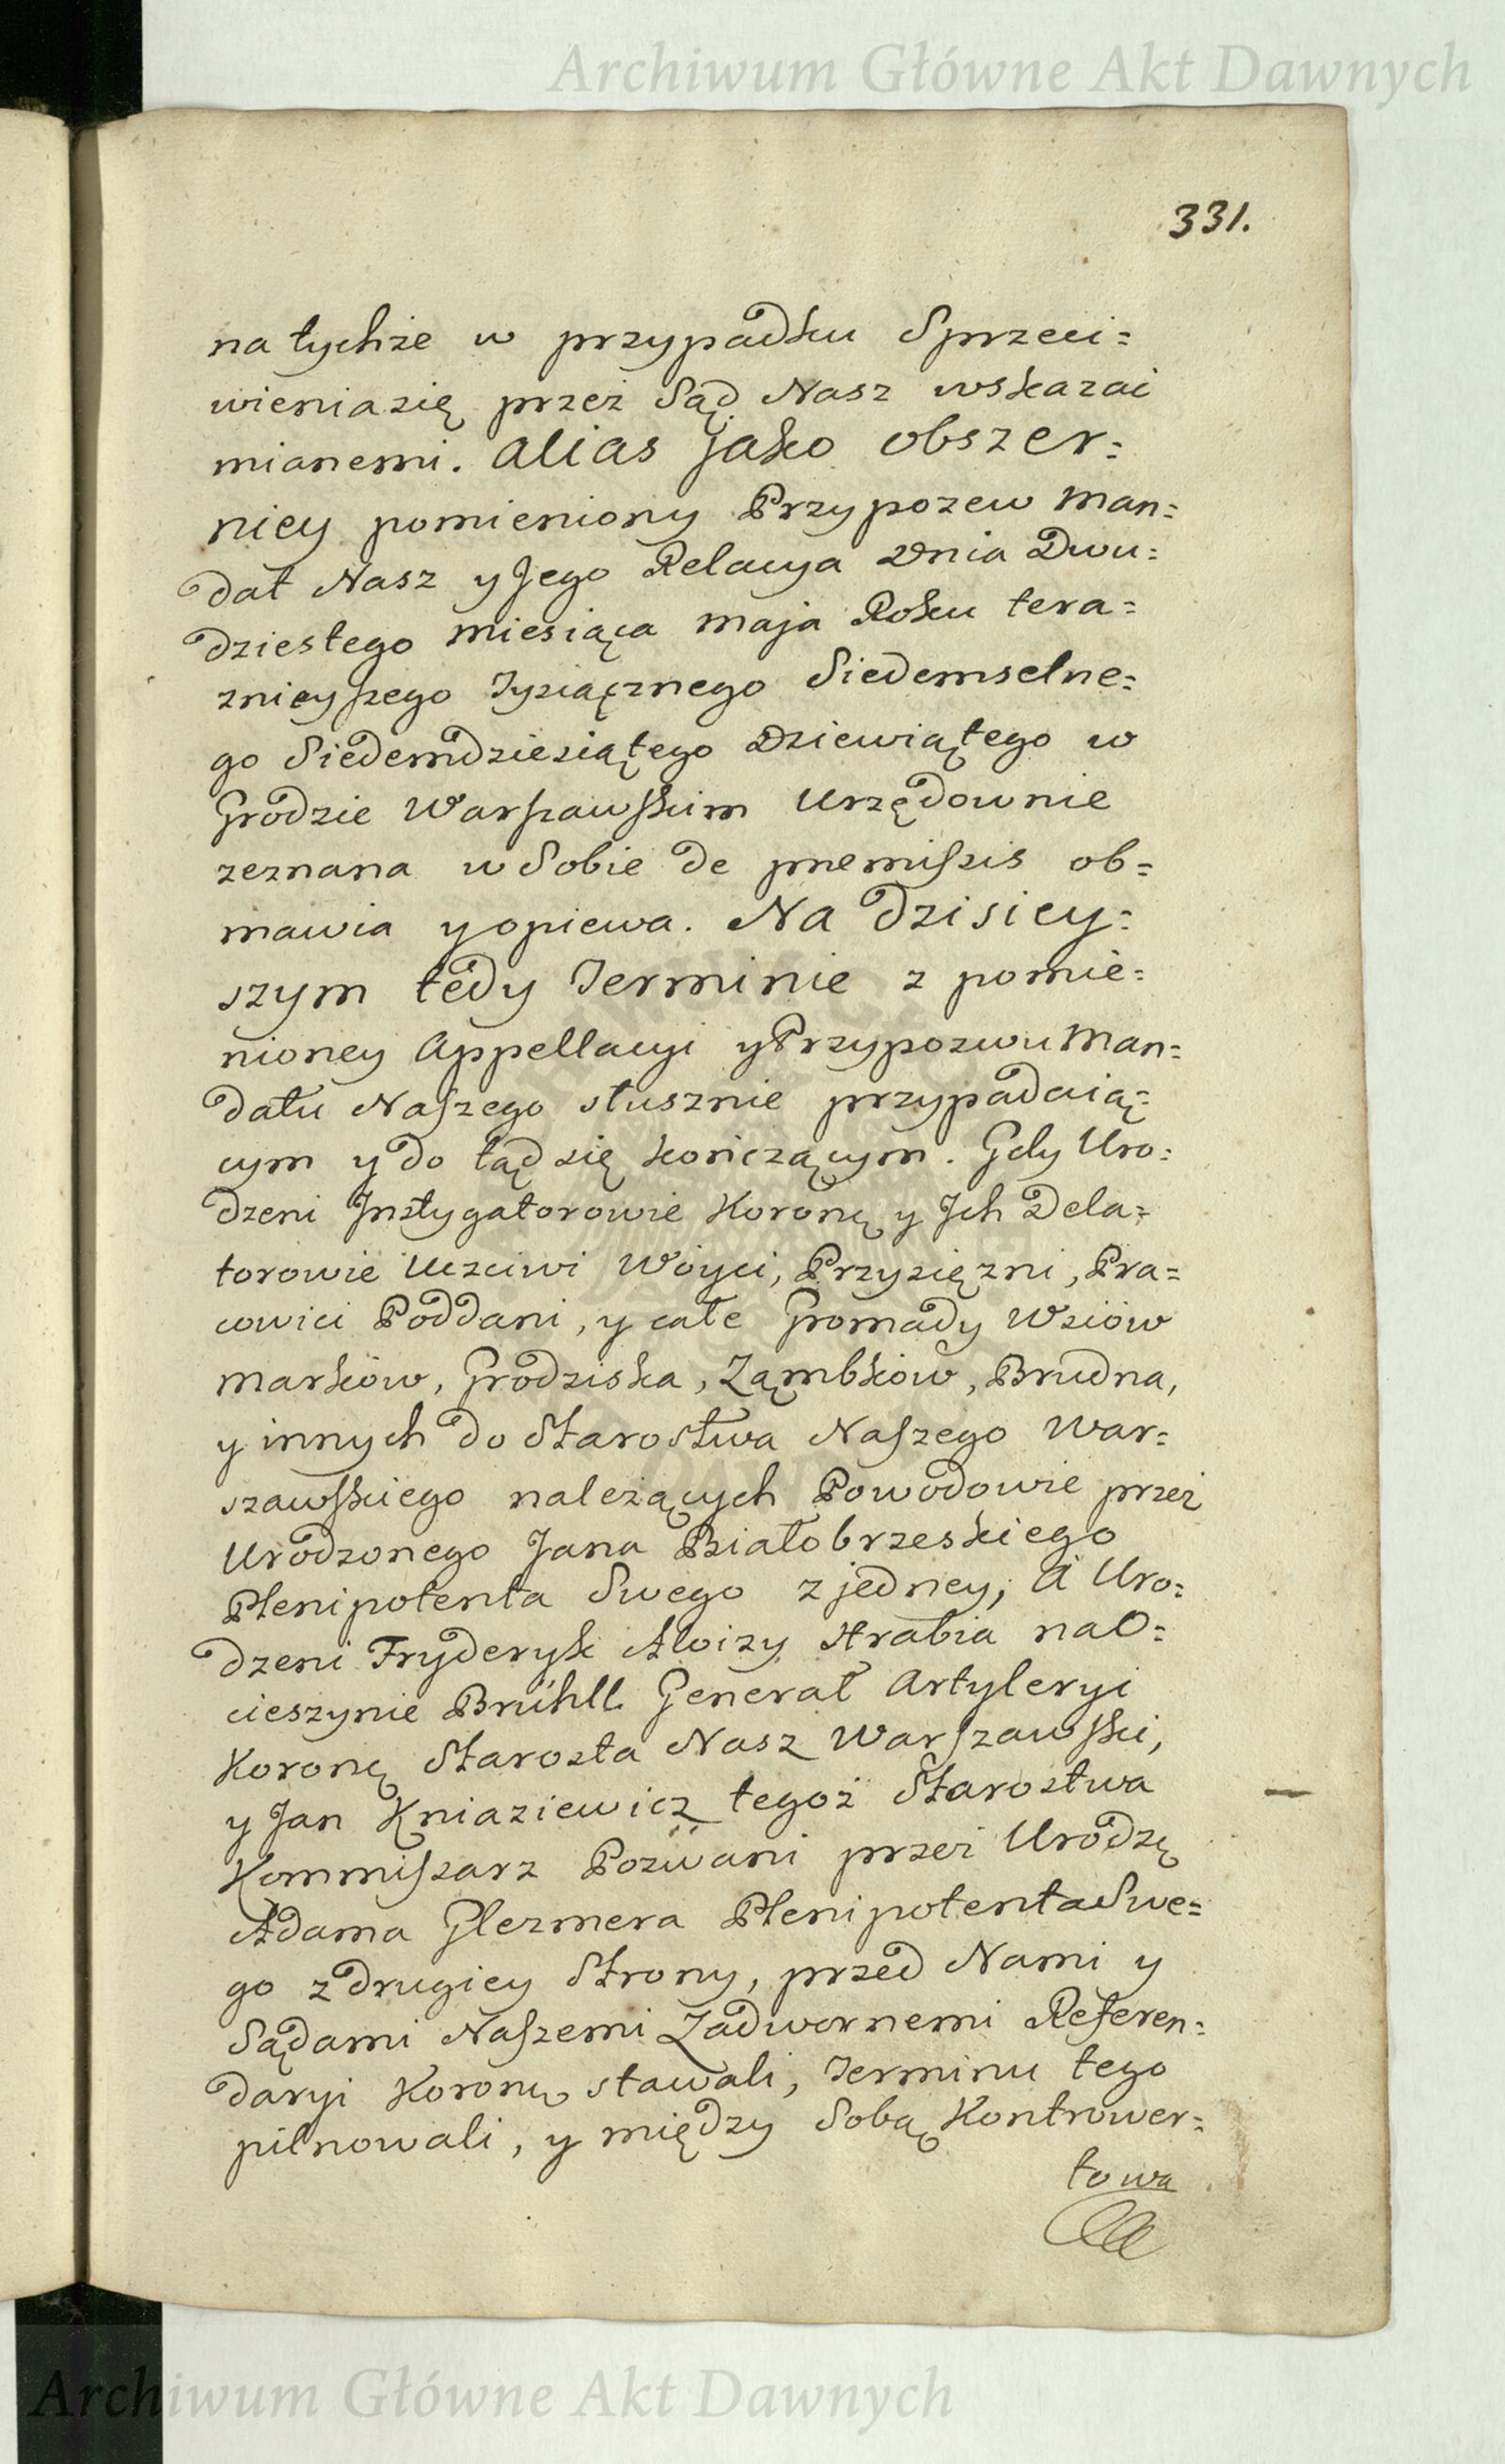 Archiwum Główne Akt Dawnych
331.
na tychże w przypadku Sprzeci=
wienia się przez Sąd Nasz wskazać
mianemi. alias jako obszer=
niey pomieniony Przypozew Man=
dat Nasz y Jego Relacya Dnia Dwu=
dziestego miesiąca maja Roku tera=
znieyszego Tysiącznego Siedemsetne=
go Siedemdziesiątego Dziewiątego w
Grodzie Warszawskim Urzędownie
zeznana w Sobie de premissis ob=
mawia y opiewa. Na dzisiey=
szym tedy Terminie z pomie=
nioney Appellacyi y Przypozwu Man=
datu Naszego słusznie przypadaią=
cym y do tąd się kończącym. Gdy Uro=
dzeni Instygatorowie Koronę y Jch Dela=
torowie Uczciwi Wóyci, Przysięzni, Pra=
cowici Poddani, y całe Gromady Wsiów
Markow, Grodziska, Ząmbkow, Brudna,
y innych do Starostwa Naszego War=
szawskiego należących Powodowie przez
Urodzonego Jana Białobrzeskiego
Plenipotenta Swego z jedney, A Uro=
dzeni Fryderyk Aloizy Hrabia na O=
cieszynie Brühll Generał Artyleryi
Koronę Starosta Nasz Warszawski,
y Jan Kniaziewicz tegoż Starostwa
Kommissarz Pozwani przez Urodzę
Adama Glezmera Plenipotenta Swe=
go z drugiey Strony, przed Nami y
Sądami Naszemi Zadwornemi Referen=
daryi Koronę stawali, Terminu tego
pilnowali, y między Sobą Kontrower=
towa
Archiwum Główne Akt Dawnych